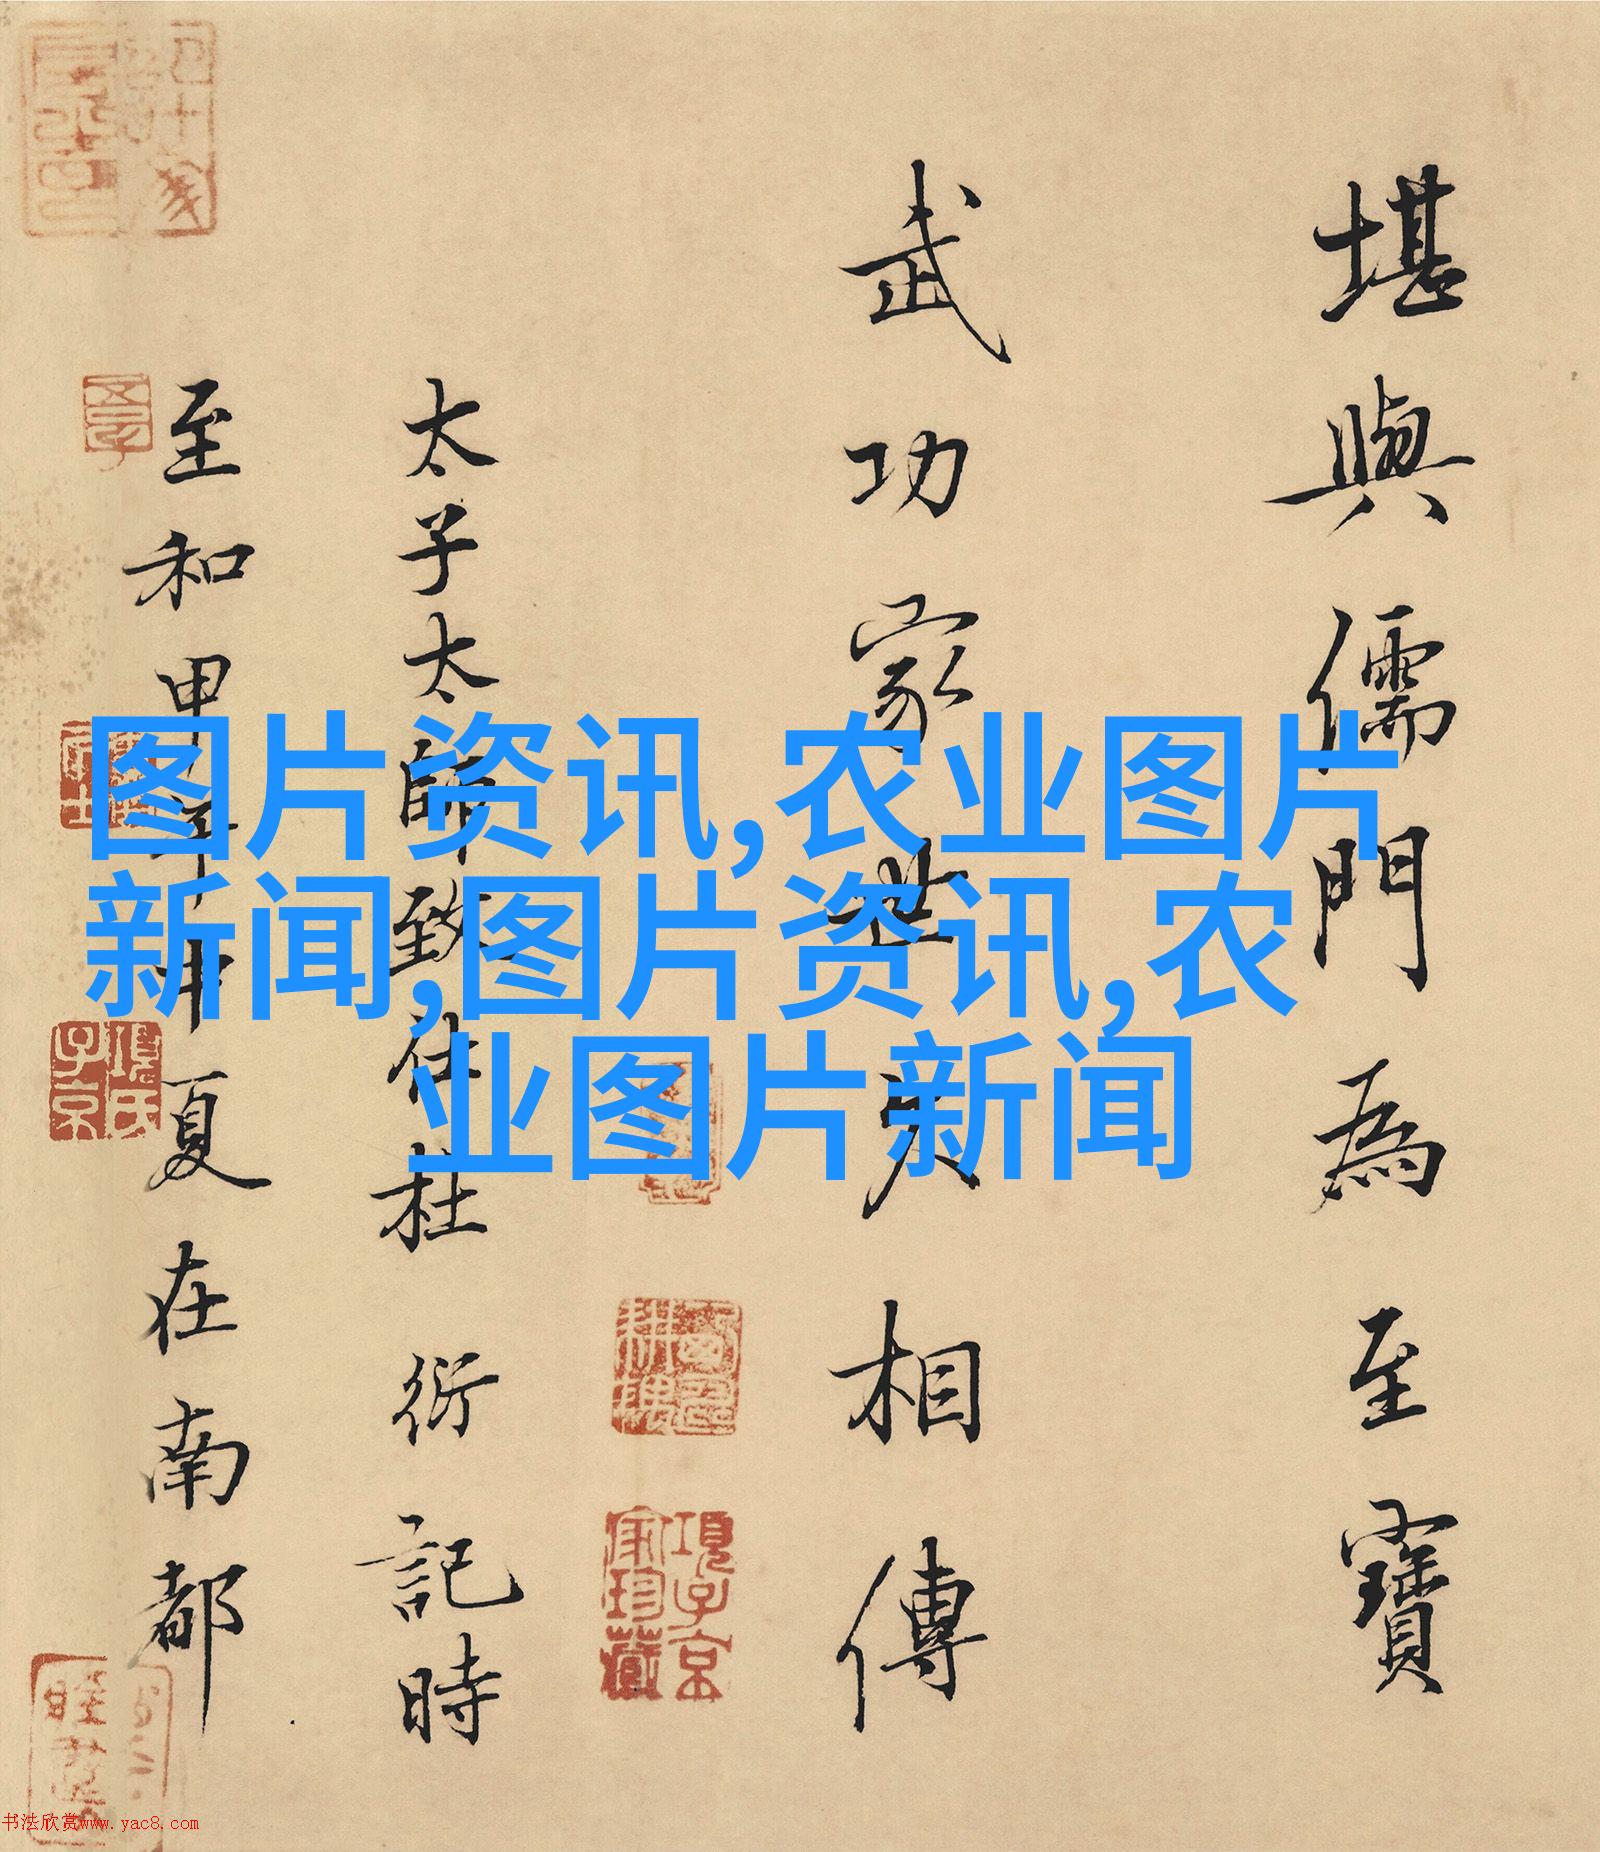 堪輿儒門為至寶
武功家世久相傳
太子太師致仕杜衍記時
至和甲午中夏在南都
图片资讯,农业图片
新闻,图片资讯,农
业图片新闻
項子京
家珍藏
項氏
子京
书法欣赏www.yac8.com